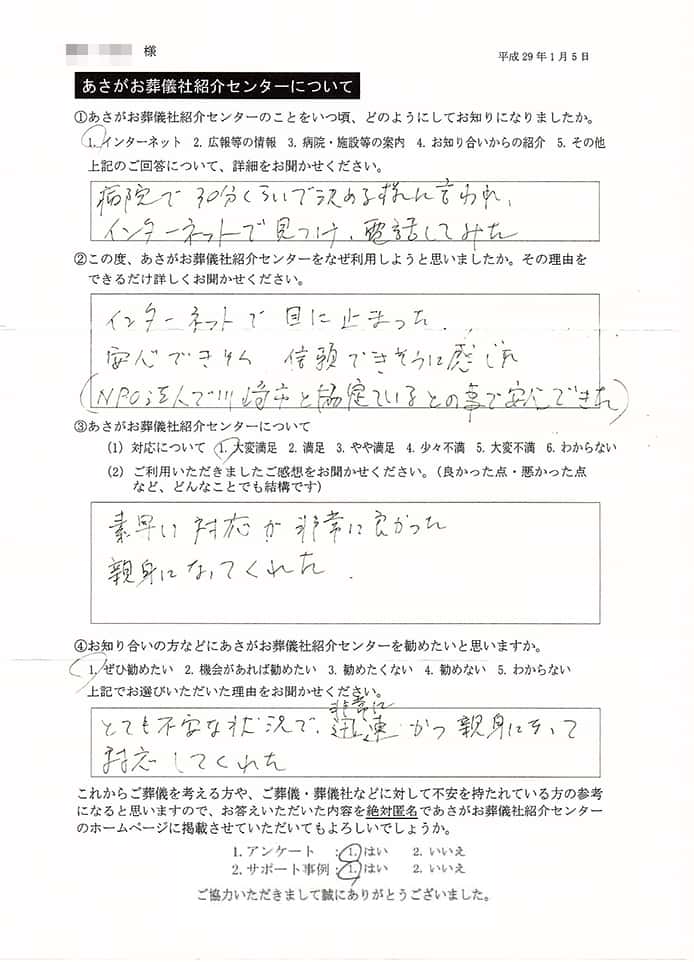 様
平成29年1月5日
あさがお葬儀社紹介センターについて
①あさがお葬儀社紹介センターのことをいつ頃、どのようにしてお知りになりましたか。
1. インターネット 2. 広報等の情報 3. 病院・施設等の案内 4. お知り合いからの紹介 5. その他
上記のご回答について、詳細をお聞かせください。
病院で30分くらいで決める様に言われ、
インターネットで見つけ、電話してみた
②この度、あさがお葬儀社紹介センターをなぜ利用しようと思いましたか。その理由を
できるだけ詳しくお聞かせください。
インターネットで目に止まった.
安心できそう 信頼できそうに感じた
(NPO法人で川崎市と協定ているとの事で安心できた)
③あさがお葬儀社紹介センターについて
(1) 対応について 1. 大変満足 2. 満足 3. やや満足 4. 少々不満 5. 大変不満 6. わからない
(2) ご利用いただきましたご感想をお聞かせください。(良かった点・悪かった点
など、どんなことでも結構です)
素早い対応が非常に良かった
親身になってくれた.
④お知り合いの方などにあさがお葬儀社紹介センターを勧めたいと思いますか。
1. ぜひ勧めたい 2. 機会があれば勧めたい 3. 勧めたくない 4. 勧めない 5. わからない
上記でお選びいただいた理由をお聞かせください。
非常に
とても不安な状況で、迅速かつ親身になって
対応してくれた
これからご葬儀を考える方や、ご葬儀・葬儀社などに対して不安を持たれている方の参考
になると思いますので、お答えいただいた内容を絶対匿名であさがお葬儀社紹介センター
のホームページに掲載させていただいてもよろしいでしょうか。
1. アンケート :1. はい 2. いいえ
2. サポート事例:1. はい 2. いいえ
ご協力いただきまして誠にありがとうございました。